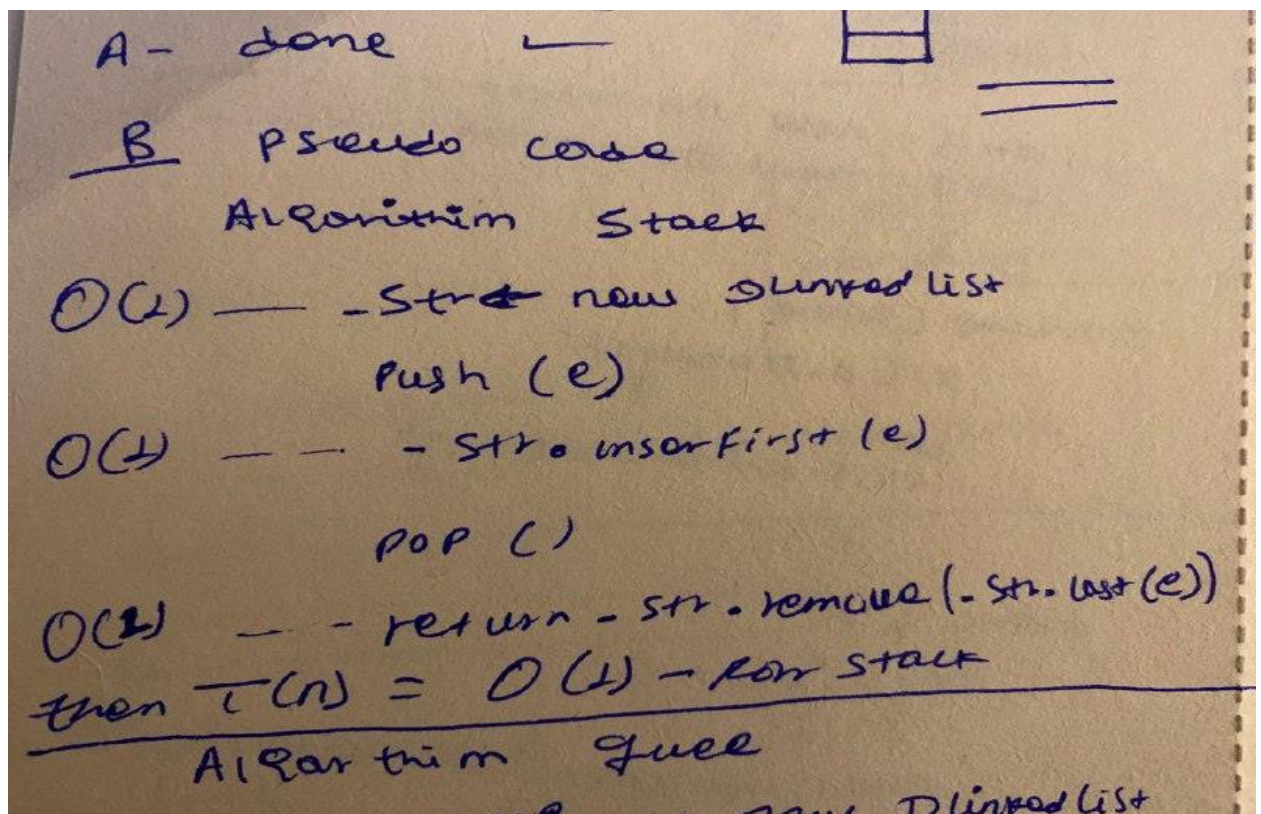 A - done
B pseudo code
Algorithim Stack
O(1) — - Str new DLinked list
Push (e)
O(1) — — - Str. inserFirst (e)
POP ()
O(1) — - - return - str. remove (- Str. last (e))
then T(n) = O(1) - For stack
Algarthim quee
new DLinked list